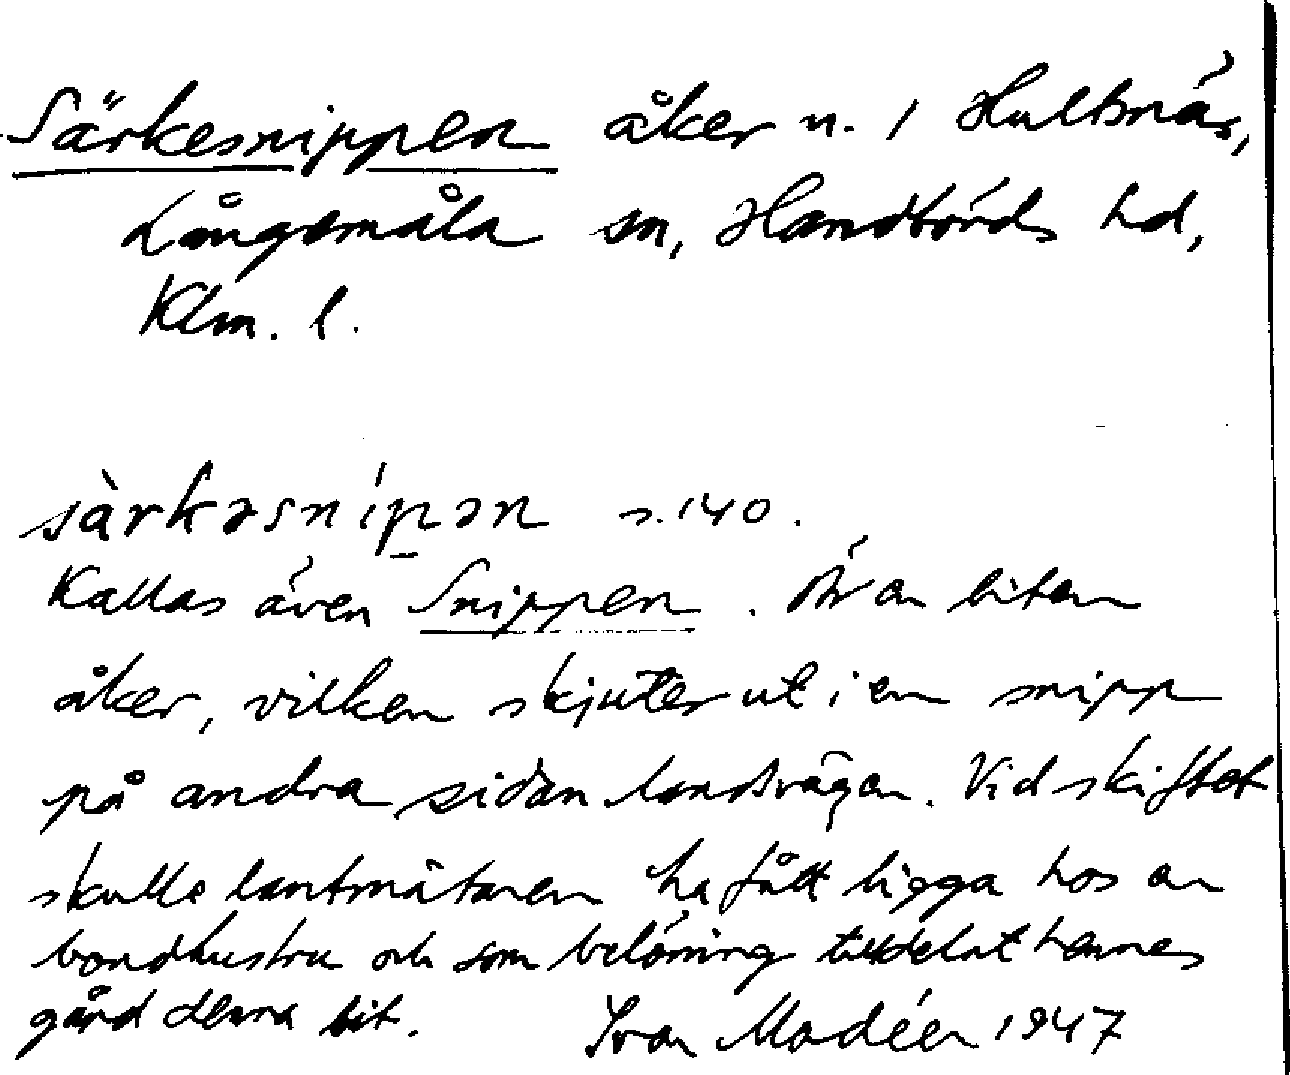 Särkesnippen åker n. 1 Hultsnäs,
Långemåla sn, Handbörds hd,
Klm. l.
särkəsnipən s. 140.
Kallas även Snippen. Är en liten
åker, vilken skjuter ut i en snipp
på andra sidan landsvägen. Vid skiftet
skulle lantmätaren ha fått ligga hos en
bondhustru och som belöning tilldelat hennes
gård denna bit. Ivar Modéer 1947